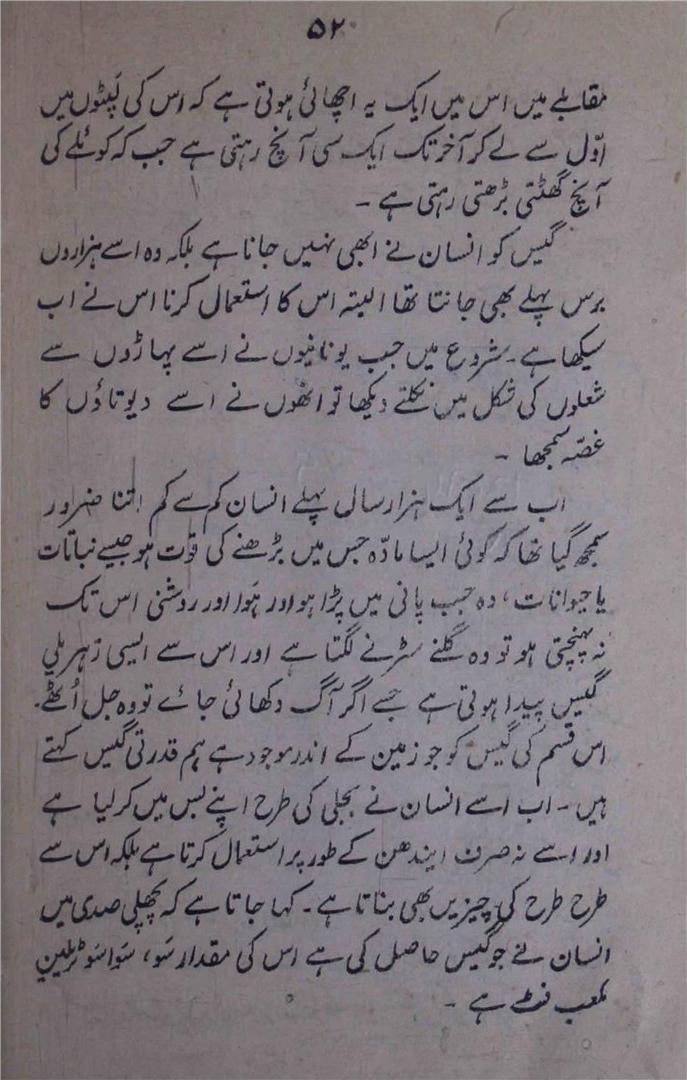 ۵۲
مقابلے میں اس میں ایک یہ اچھائی ہوتی ہے کہ اس کی لَپٹوں میں
اوّل سے لے کر آخر تک ایک سی آنچ رہتی ہے جب کہ کوئلے کی
آنچ گھٹتی بڑھتی رہتی ہے ۔
گیس کو انسان نے ابھی نہیں جانا ہے بلکہ وہ اسے ہزاروں
برس پہلے بھی جانتا تھا البتہ اس کا استعمال کرنا اس نے اب
سیکھا ہے۔ شروع میں جب یونانیوں نے اسے پہاڑوں سے
شعلوں کی شکل میں نکلتے دیکھا تو انھوں نے اسے دیوتاؤں کا
غصّہ سمجھا ۔
اب سے ایک ہزار سال پہلے انسان کم سے کم اتنا ضرور
سمجھ گیا تھا کہ کوئی ایسا مادّہ جس میں بڑھنے کی قوّت ہو جیسے نباتات
یا حیوانات، وہ جب پانی میں پڑا ہو اور ہَوا اور روشنی اس تک
نہ پہنچتی ہو تو وہ گلنے سڑنے لگتا ہے اور اس سے ایسی زہریلی
گیس پیدا ہوتی ہے جسے اگر آگ دکھائی جائے تو وہ جل اُٹھے۔
اس قسم کی گیس کو جو زمین کے اندر موجود ہے ہم قدرتی گیس کہتے
ہیں ۔ اب اسے انسان نے بجلی کی طرح اپنے بس میں کر لیا ہے
اور اسے نہ صرف ایندھن کے طور پر استعمال کرتا ہے بلکہ اس سے
طرح طرح کی چیزیں بھی بناتا ہے۔ کہا جاتا ہے کہ پچھلی صدی میں
انسان نے جو گیس حاصل کی ہے اس کی مقدار سَو، سَوا سَو ٹریلین
مکعب فٹ ہے ۔